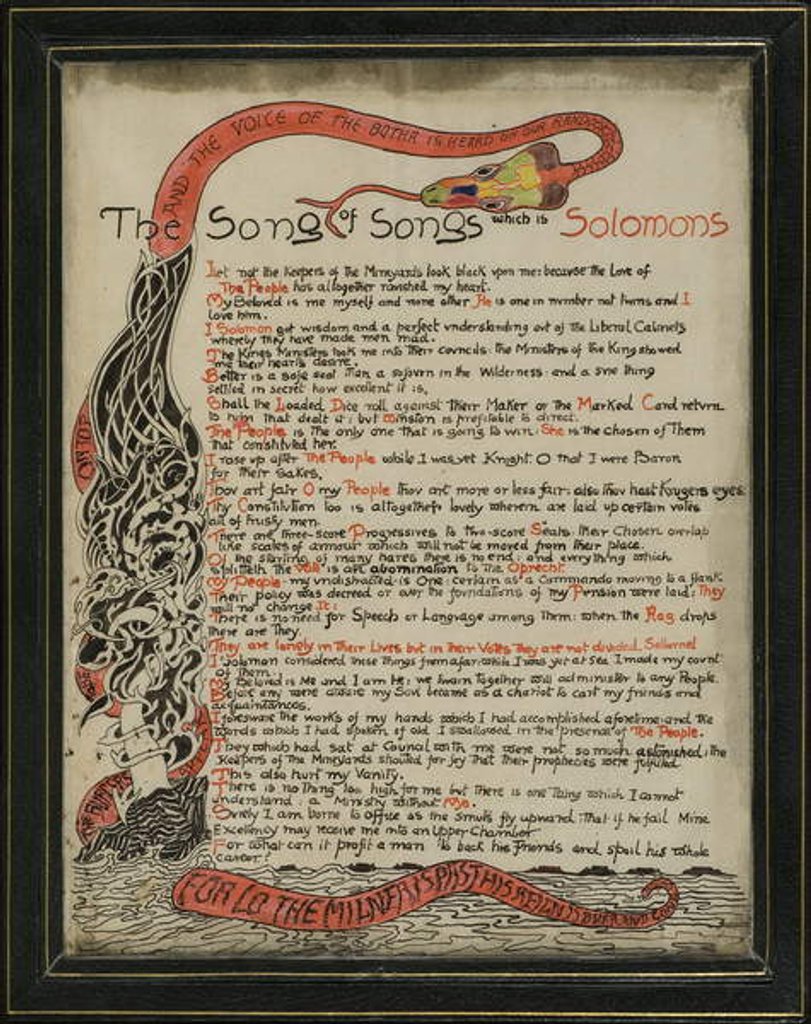 AND THE VOICE OF THE BOTHA IS HEARD ON OUR RAND
The Song of Songs which is Solomons
Let not the Keepers of the Mineyards look black upon me: because the love of
The People has altogether ravished my heart.
My Beloved is me myself and none other He is one in number not twins and I
love him.
I Solomon got wisdom and a perfect understanding out of the Liberal Cabinets
whereby they have made men mad.
The Kings Ministers took me into their councils: the Ministers of the King showed
me their hearts desire.
Better is a safe seat than a sojourn in the Wilderness and a sure thing
settled in secret how excellent it is.
Shall the Loaded Dice roll against their Maker or the Marked Card return
to him that dealt it: but Winston is profitable to direct.
The People is the only one that is going to win: She is the chosen of Them
that constituted her.
I rose up after The People while I was yet Knight. O that I were Baron
for their sakes.
Thou art fair O my People thou art more or less fair: also thou hast Krugers eyes.
Thy Constitution too is altogether lovely wherein are laid up certain votes
all of frisky men.
There are three-score Progressives to two-score Seats: their Chosen overlap
like scales of armour which will not be moved from their place.
Of the starting of many hares there is no end: and everything which
splitteth the Vote is an abomination to the Oprecht.
My People my undistracted is One: certain as a Commando moving to a flank
Their policy was decreed or ever the foundations of my Pension were laid: They
will no change It:
There is no need for Speech or Language among Them: when the Rag drops
there are They.
They are lonely in Their Lives but in their Votes They are not divided. Selborne!
I Solomon considered these things from afar while I was yet at Sea I made my count
of Them.
My Beloved is Me and I am He: we twain together will administer to any People.
Before any were aware my Soul became as a chariot to cart my friends and
acquaintances.
I foreswore the works of my hands which I had accomplished aforetime and the
words which I had spoken of old I swallowed in the presence of The People.
They which had sat at Council with me were not so much astonished: the
Keepers of the Mineyards shouted for joy that their prophecies were fulfilled
This also hurt my Vanity.
There is no thing too high for me but there is one thing which I cannot
understand: a Ministry without Me.
Surely I am borne to office as the smuts fly upward: that if he fail Mine
Excellency may receive me into an Upper Chamber
For what can it profit a man to back his friends and spoil his whole
career?
FOR LO THE MILNER IS PAST HIS REIGN IS OVER AND